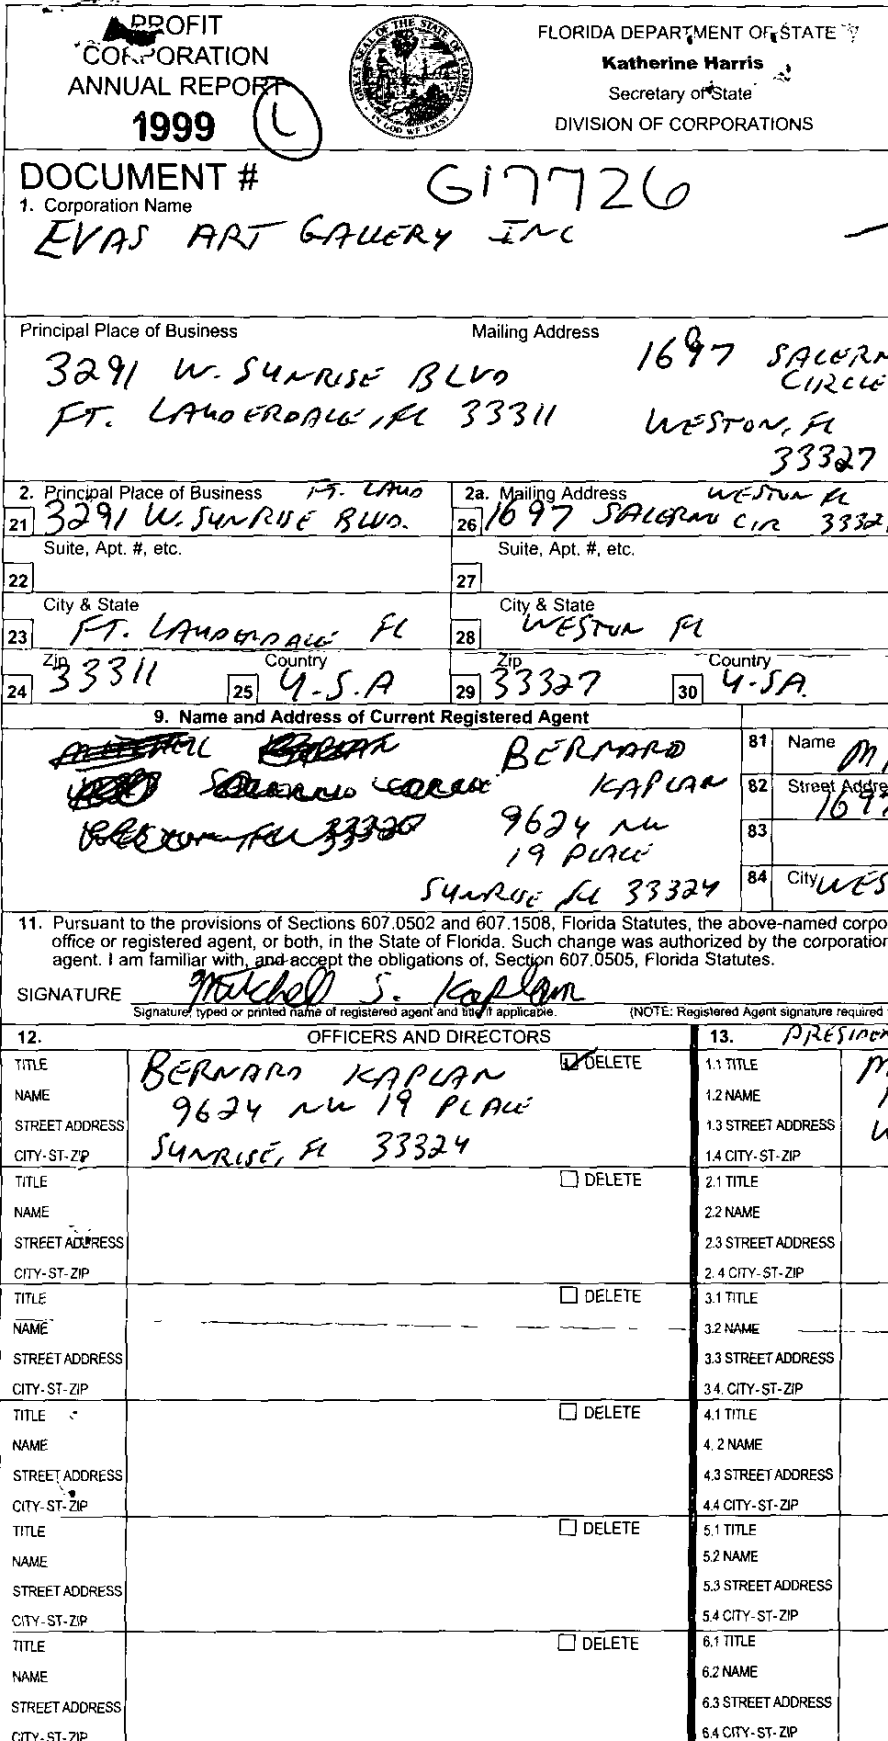 PROFIT
CORPORATION
ANNUAL REPORT
1999
L
GREAT SEAL OF THE STATE OF FLORIDA
IN GOD WE TRUST
FLORIDA DEPARTMENT OF STATE
Katherine Harris
Secretary of State
DIVISION OF CORPORATIONS
DOCUMENT # G17726
1. Corporation Name
EVAS ART GALLERY INC
Principal Place of Business
3291 W. SUNRISE BLVD
FT. LAUDERDALE, FL 33311
Mailing Address
1697 SALERN
CIRCLE
WESTON, FL
33327
2. Principal Place of Business FT. LAUD
21 3291 W. SUNRISE BLVD.
2a. Mailing Address WESTON FL
26 1697 SALERNO CIR 3332
Suite, Apt. #, etc.
22
Suite, Apt. #, etc.
27
City & State
23 FT. LAUDERDALE FL
City & State
28 WESTON FL
Zip
24 33311
Country
25 U.S.A
Zip
29 33327
Country
30 U.S.A.
9. Name and Address of Current Registered Agent
BERNARD
KAPLAN
9624 NW
19 PLACE
SUNRISE FL 33324
81 Name M
82 Street Addre
1697
83
84 City WES
11. Pursuant to the provisions of Sections 607.0502 and 607.1508, Florida Statutes, the above-named corpo
office or registered agent, or both, in the State of Florida. Such change was authorized by the corporation
agent. I am familiar with, and accept the obligations of, Section 607.0505, Florida Statutes.
SIGNATURE Mitchell S. Kaplan
Signature, typed or printed name of registered agent and title if applicable.
(NOTE: Registered Agent signature required
12. OFFICERS AND DIRECTORS
TITLE BERNARD KAPLAN DELETE
NAME 9624 NW 19 PLACE
STREET ADDRESS
CITY-ST-ZIP SUNRISE, FL 33324
TITLE DELETE
NAME
STREET ADDRESS
CITY-ST-ZIP
TITLE DELETE
NAME
STREET ADDRESS
CITY-ST-ZIP
TITLE DELETE
NAME
STREET ADDRESS
CITY-ST-ZIP
TITLE DELETE
NAME
STREET ADDRESS
CITY-ST-ZIP
TITLE DELETE
NAME
STREET ADDRESS
CITY-ST-ZIP
13. PRESIDEN
1.1 TITLE M
1.2 NAME
1.3 STREET ADDRESS
1.4 CITY-ST-ZIP
2.1 TITLE
2.2 NAME
2.3 STREET ADDRESS
2.4 CITY-ST-ZIP
3.1 TITLE
3.2 NAME
3.3 STREET ADDRESS
34. CITY-ST-ZIP
4.1 TITLE
4.2 NAME
4.3 STREET ADDRESS
4.4 CITY-ST-ZIP
5.1 TITLE
5.2 NAME
5.3 STREET ADDRESS
5.4 CITY-ST-ZIP
6.1 TITLE
6.2 NAME
6.3 STREET ADDRESS
6.4 CITY-ST-ZIP